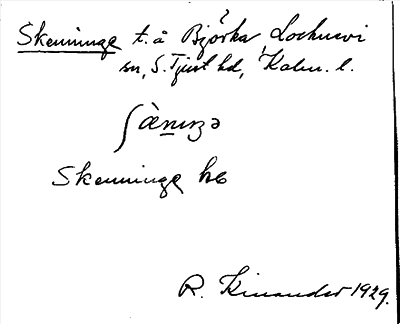 Skenninge t. å Björka Lochnevi
sn, S. Tjust hd, Kalm. l.
ʃànıŋə
Skenninge he
R. Kinander 1929.